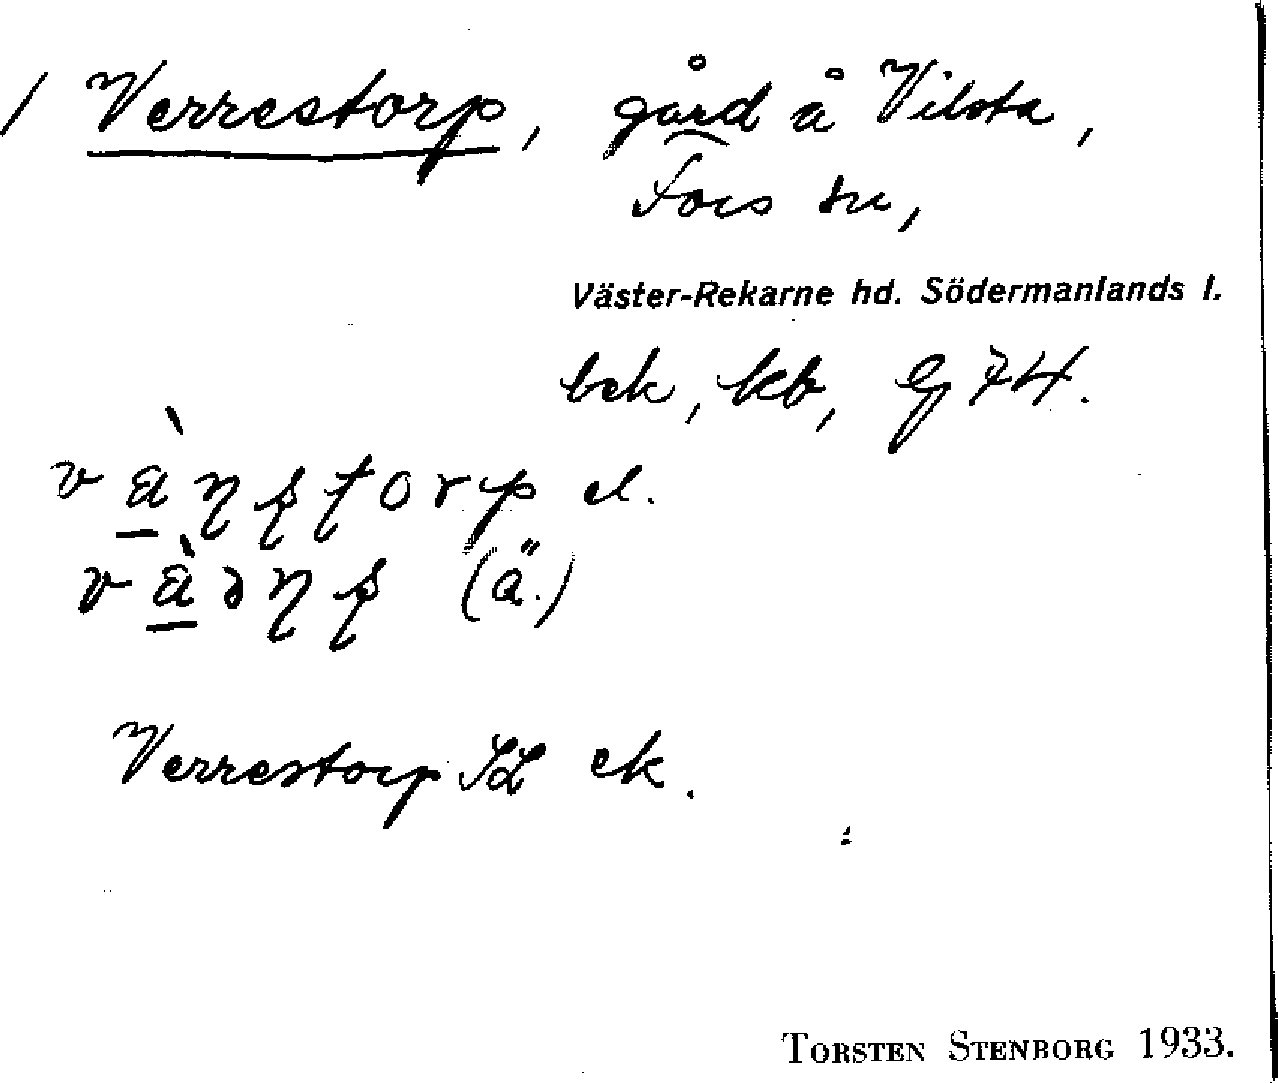 / Verrestorp, gård å Vilsta,
Fors sn,
Väster-Rekarne hd. Södermanlands l.
bek, kb, G 74.
el.
(ä.)
Verrestorp SL ek.
TORSTEN STENBORG 1933.